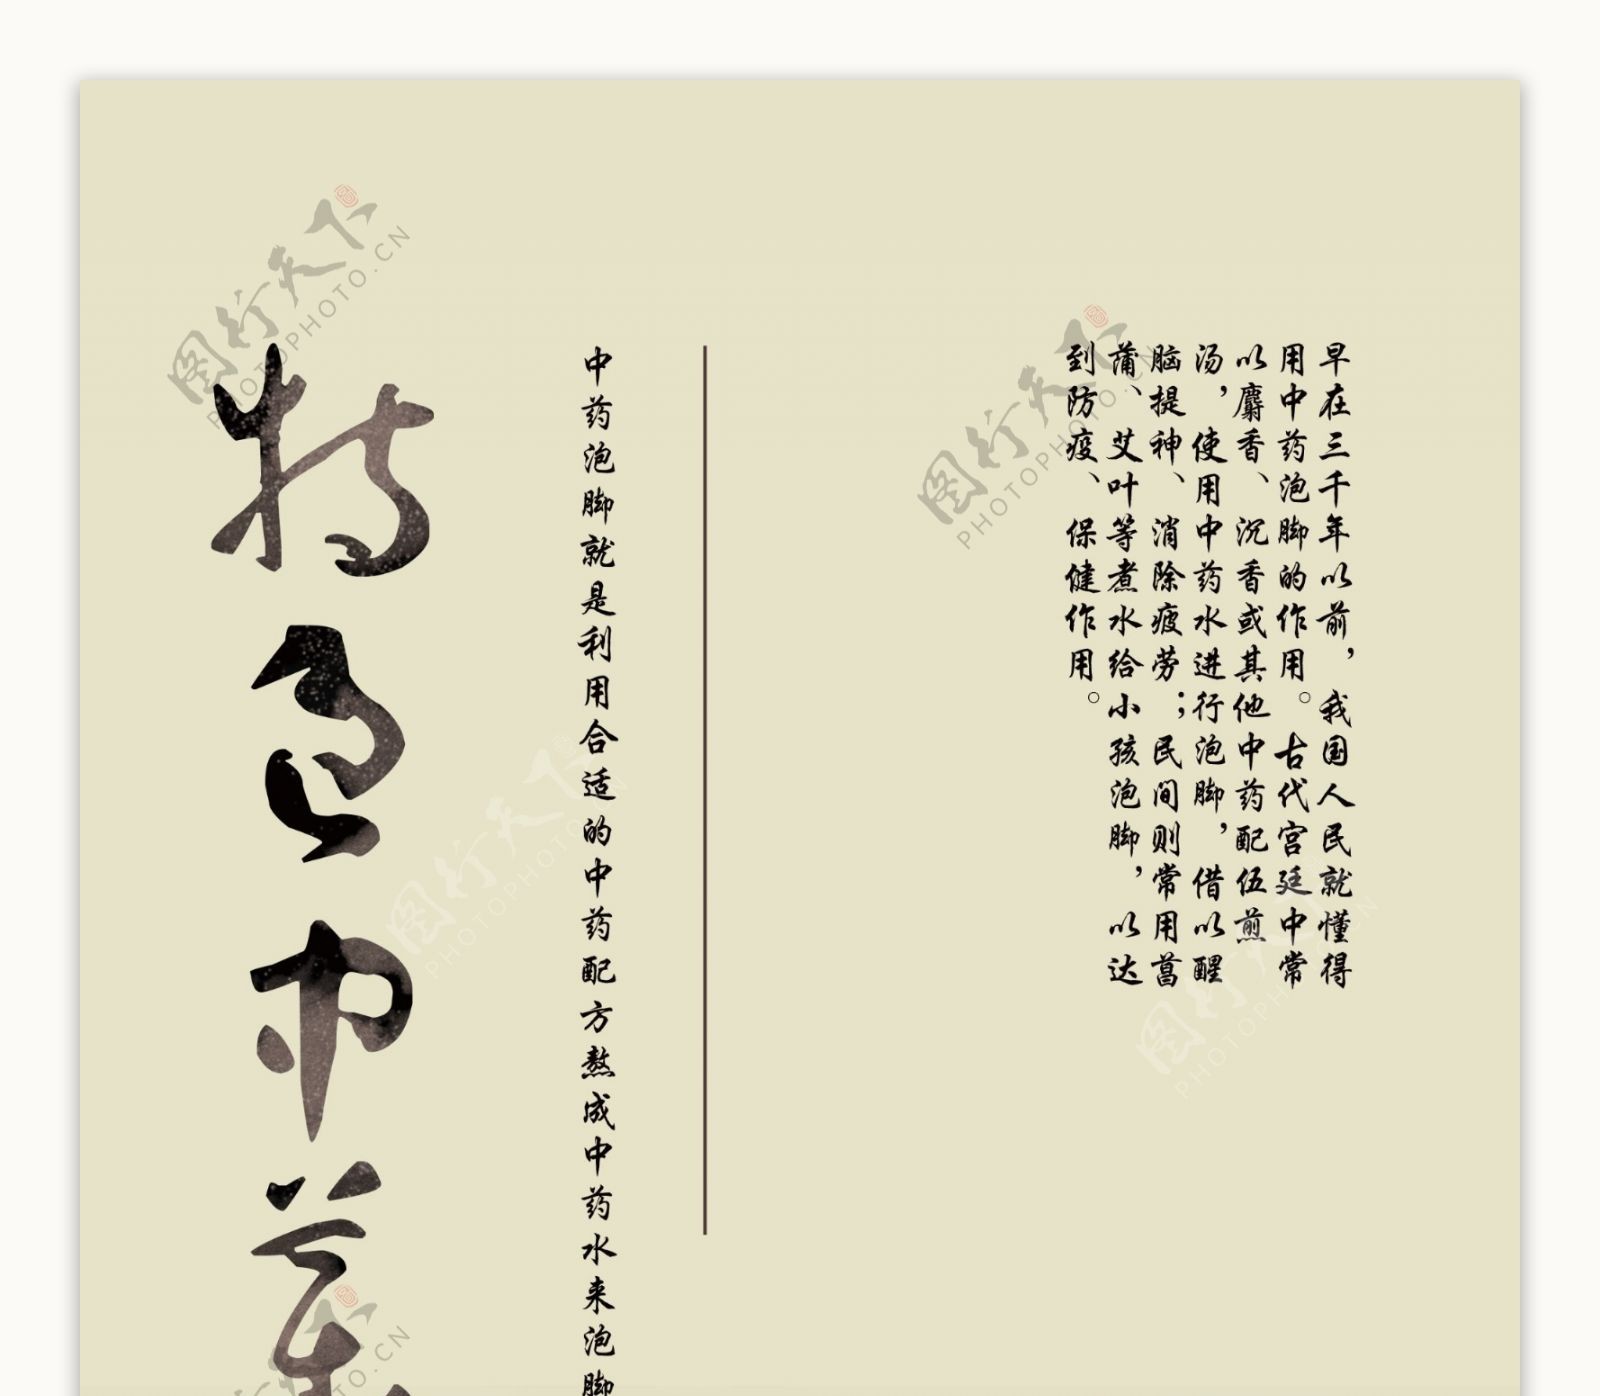 早在三千年以前，我国人民就懂得
用中药泡脚的作用。古代宫廷中常
以麝香、沉香或其他中药配伍煎
汤，使用中药水进行泡脚，借以醒
脑提神、消除疲劳；民间则常用菖
蒲、艾叶等煮水给小孩泡脚，以达
到防疫、保健作用。
中药泡脚就是利用合适的中药配方熬成中药水来泡脚
特色中药
图行天下
PHOTOPHOTO.CN
图行天下
PHOTOPHOTO.CN
图行天下
PHOTOPHOTO.CN
图行天下
PHOTOPHOTO.CN